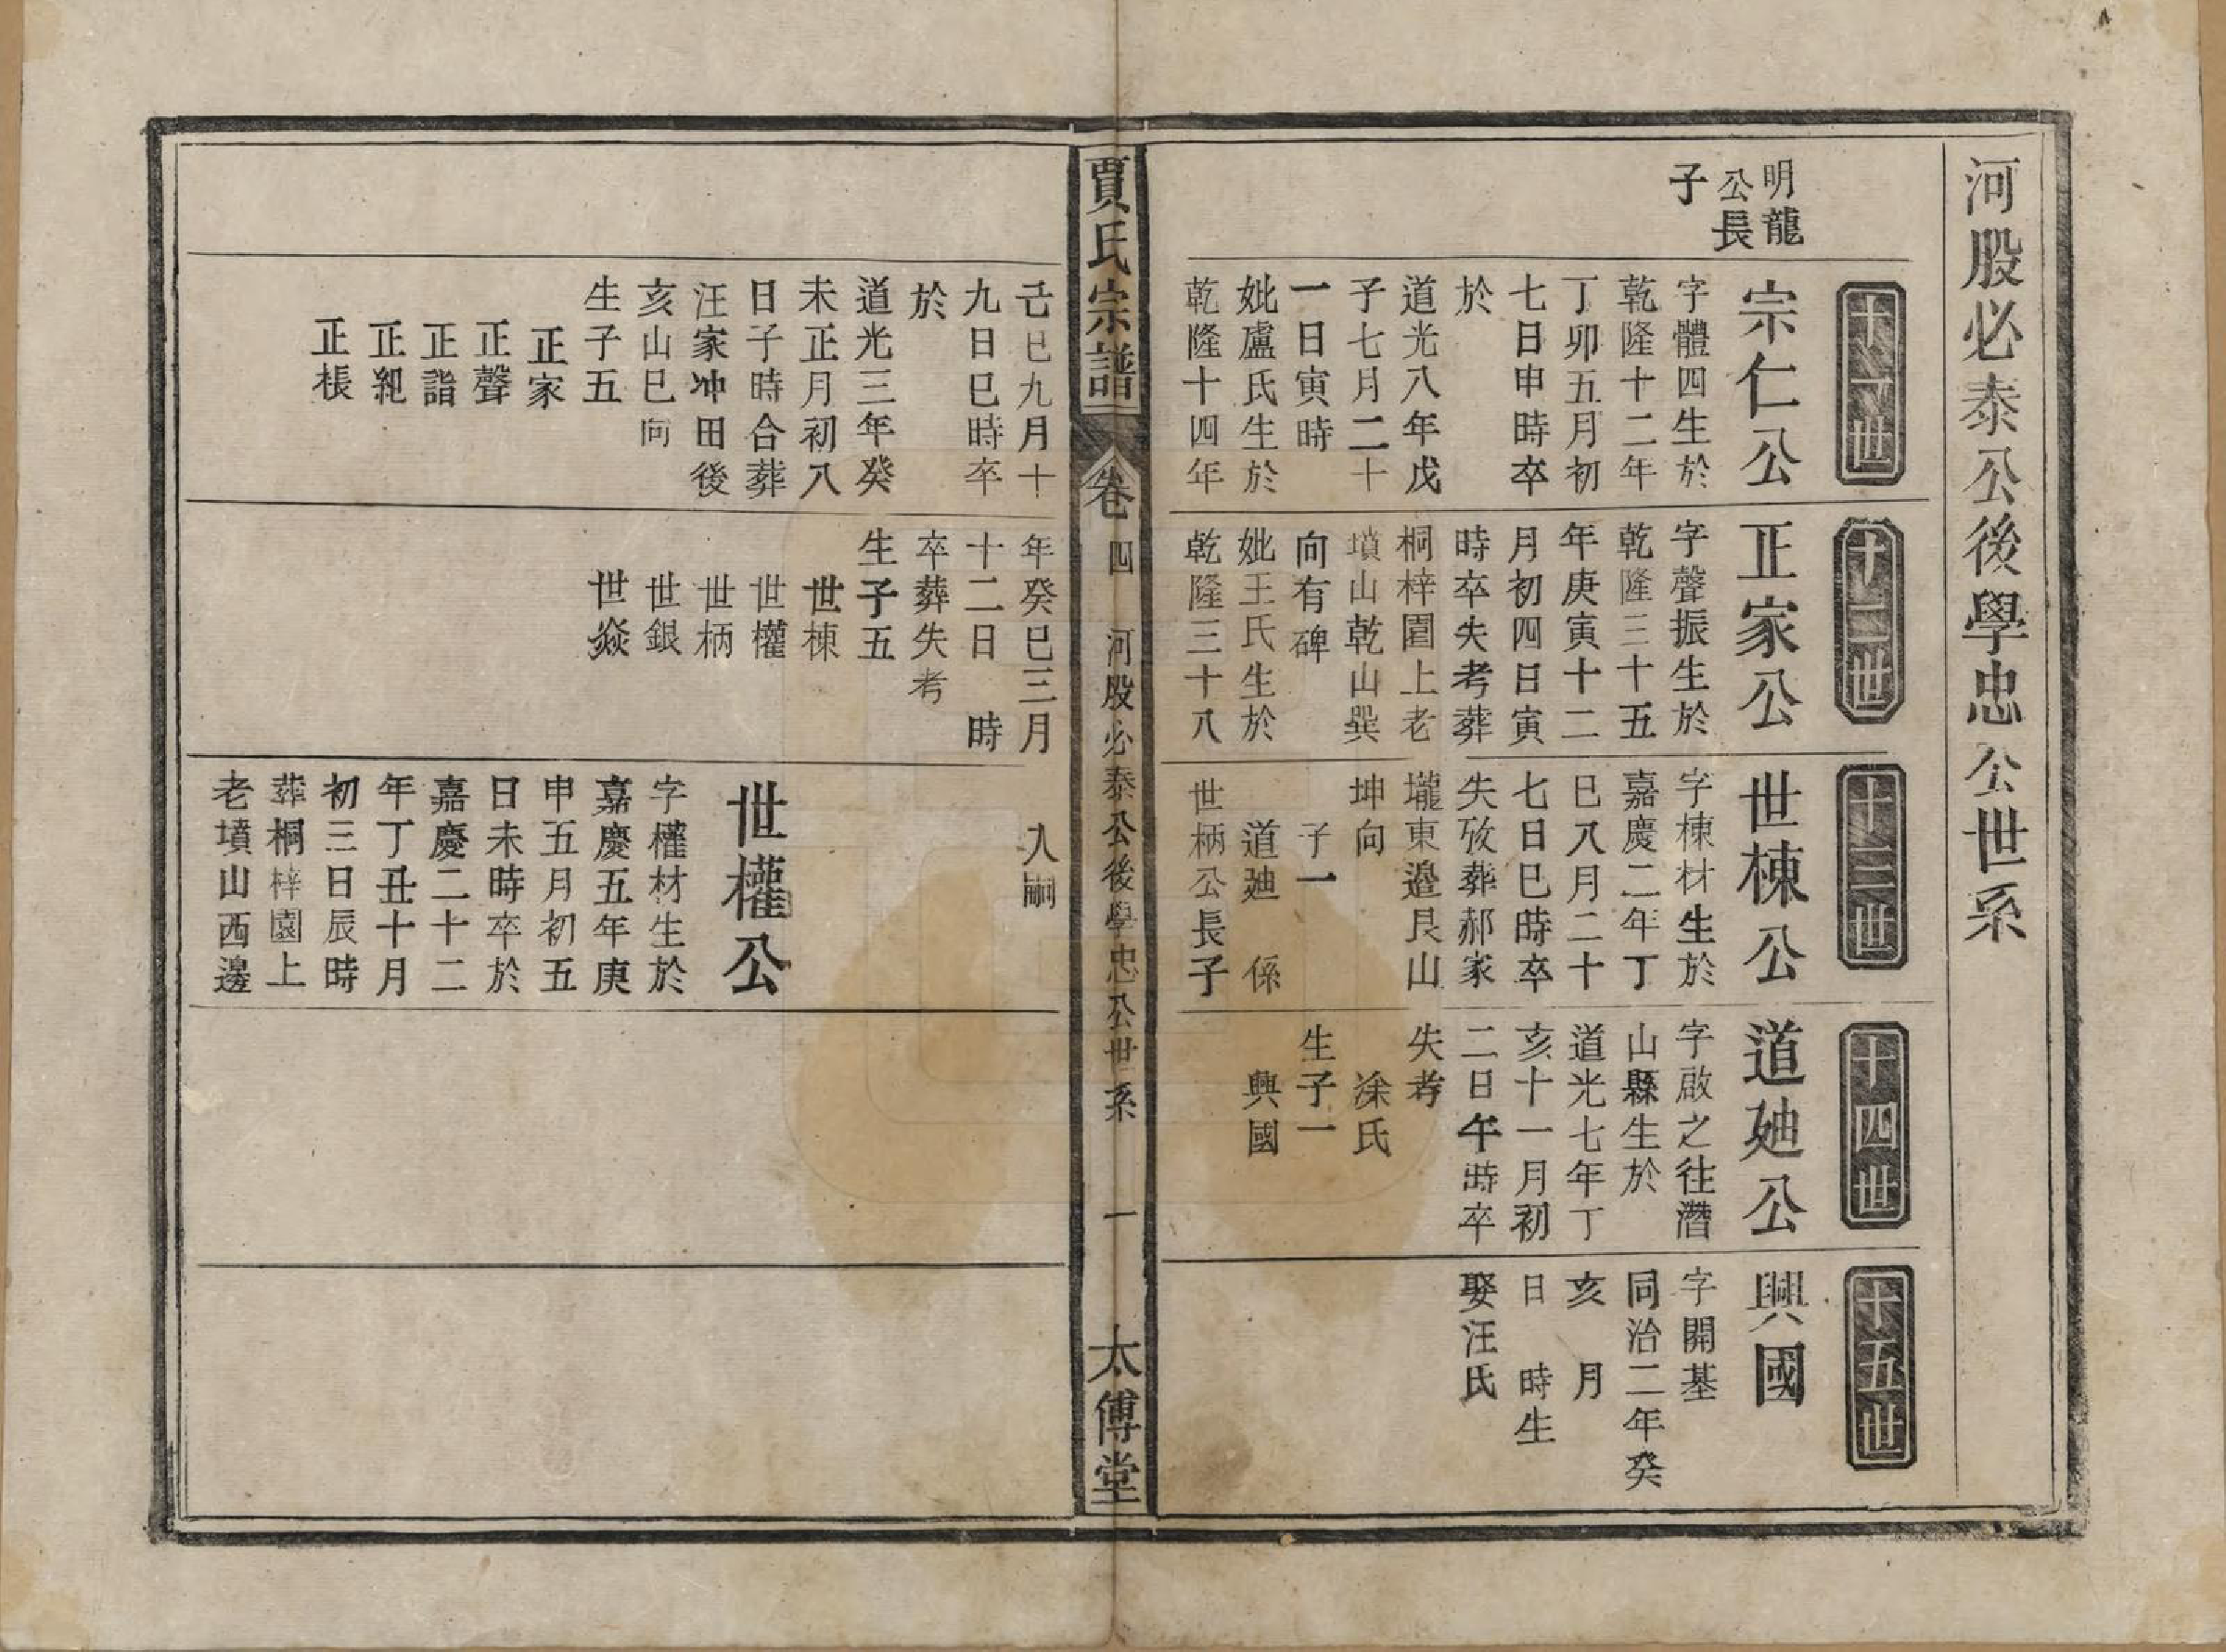 河股必泰公後學忠公世系
明龍
公長
子
十一世
宗仁公
字體四生於
乾隆十二年
丁卯五月初
七日申時卒
於
道光八年戊
子七月二十
一日寅時
妣盧氏生於
乾隆十四年
十二世
正家公
字聲振生於
乾隆三十五
年庚寅十二
月初四日寅
時卒失考葬
桐梓園上老
墳山乾山巽
向有碑
妣王氏生於
乾隆三十八
十三世
世棟公
字棟材生於
嘉慶二年丁
巳八月二十
七日巳時卒
失攷葬郝家
壠東邉艮山
坤向
子一
道廸 係
世柄公長子
十四世
道廸公
字啟之往潛
山縣生於
道光七年丁
亥十一月初
二日午時卒
失考
凃氏
生子一
興國
十五世
興國
字開基
同治二年癸
亥 月
日 時生
娶汪氏
賈氏宗譜
卷四 河股必泰公後學忠公世系 一
太傅堂
己巳九月十
九日巳時卒
於
道光三年癸
未正月初八
日子時合葬
汪家冲田後
亥山巳向
生子五
正家
正聲
正詣
正紀
正棖
年癸巳三月
十二日 時
卒葬失考
生子五
世棟
世權
世柄
世銀
世焱
入嗣
世權公
字權材生於
嘉慶五年庚
申五月初五
日未時卒於
嘉慶二十二
年丁丑十月
初三日辰時
葬桐梓園上
老墳山西邊